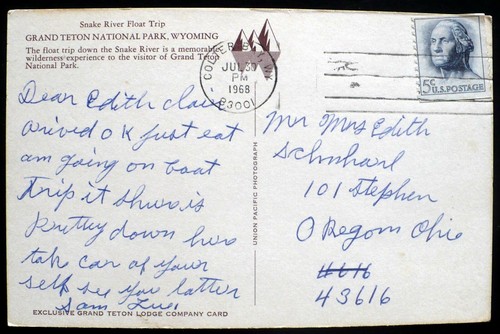 Snake River Float Trip
GRAND TETON NATIONAL PARK, WYOMING
The float trip down the Snake River is a memorable
wilderness experience to the visitor of Grand Teton
National Park.
Dear Edith
arived OK just eat
am going on boat
trip it shure is
pretty down here
take car of your
self see you latter
Sam
EXCLUSIVE GRAND TETON LODGE COMPANY CARD
UNION PACIFIC PHOTOGRAPH
JUL 30
PM
1968
83001
5¢ U.S. POSTAGE
Mr Mrs Edith
101 Stephen
Oregom Ohio
43616